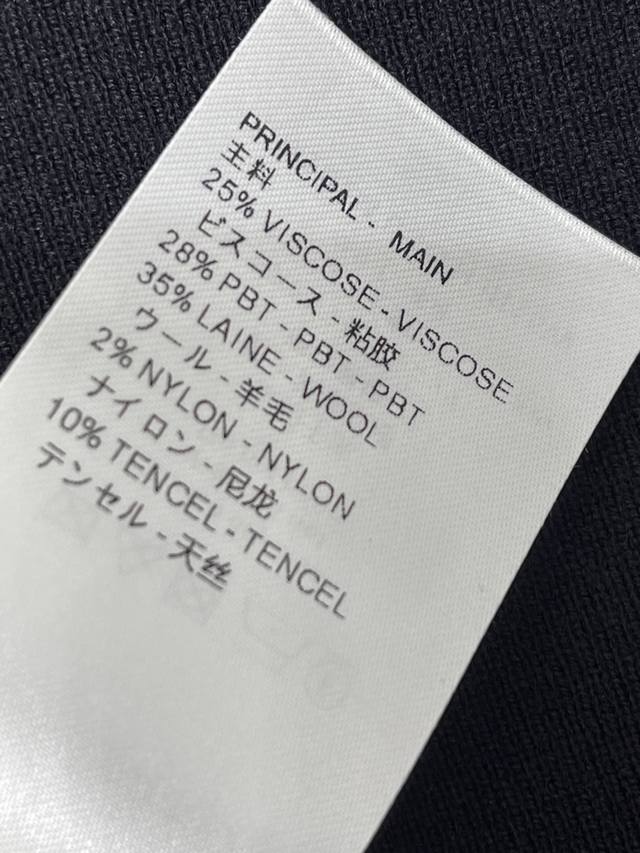 PRINCIPAL - MAIN
主料
25% VISCOSE - VISCOSE
ビスコース - 粘胶
28% PBT - PBT - PBT
35% LAINE - WOOL
ウール - 羊毛
2% NYLON - NYLON
ナイロン - 尼龙
10% TENCEL - TENCEL
テンセル - 天丝